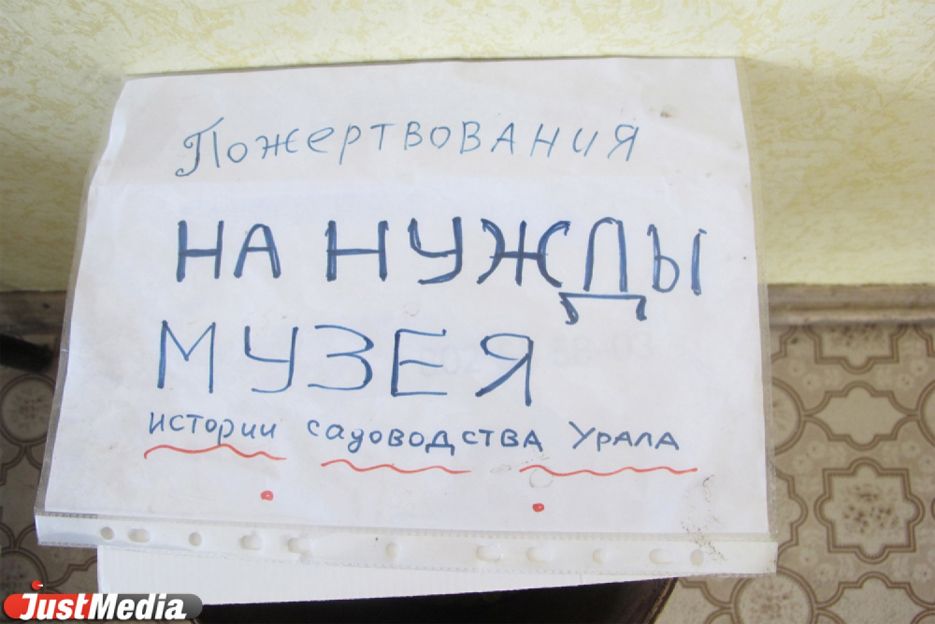 Пожертвования
НА НУЖДЫ
МУЗЕЯ
истории садоводства Урала
JustMedia